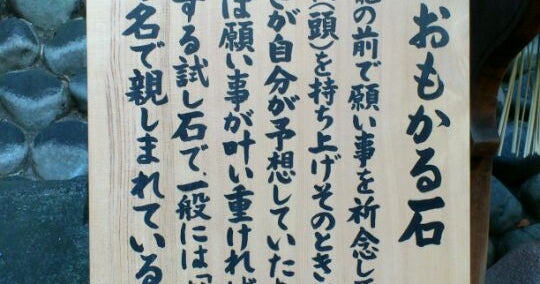 おもかる石
籠の前で願い事を祈念し
(頭)を持ち上げそのとき
が自分が予想していた
は願い事が叶い重ければ
する試し石で、一般には「
名で親しまれている